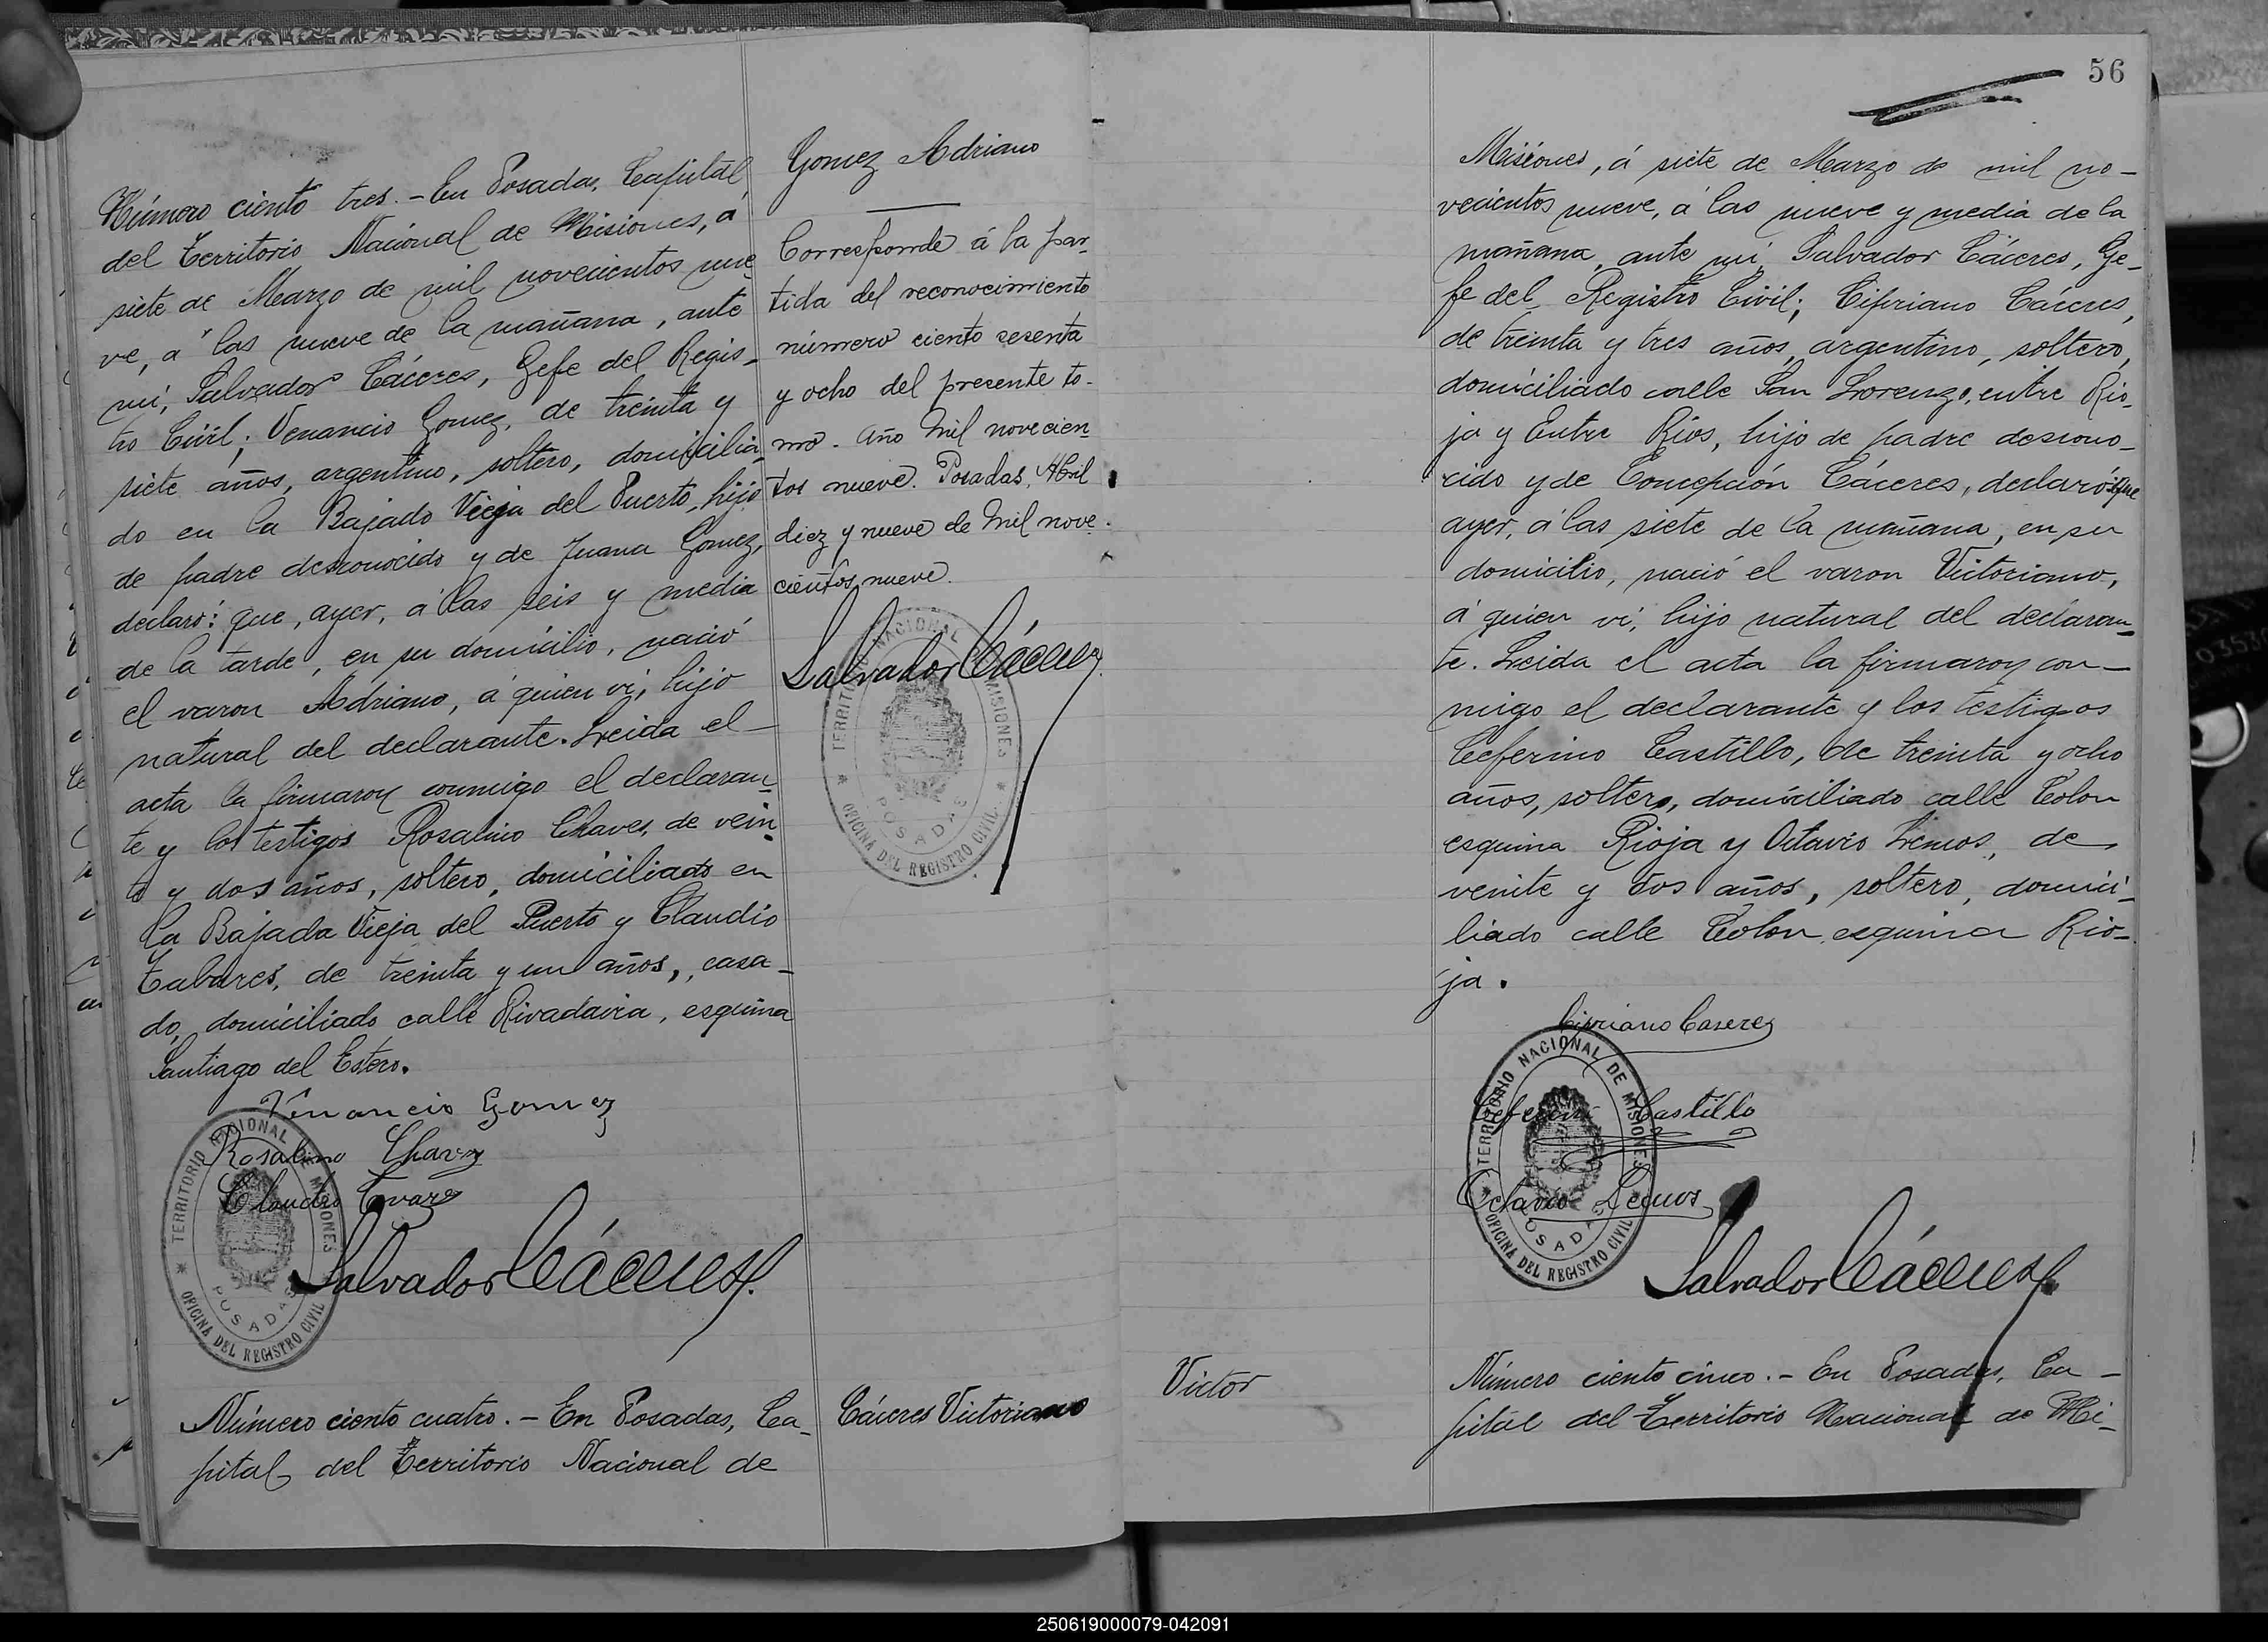 Número ciento tres.- En Posadas, Capital
del Territorio Nacional de Misiones, á
siete de Marzo de mil novecientos nue
ve, á las nueve de la mañana, ante
mí, Salvador Cáceres, Gefe del Regis-
tro Civil; Venancio Gomez, de treinta y
siete años, argentino, soltero, domicilia-
do en la Bajado Vieja del Puerto, hijo
de padre desconocido y de Juana Gomez,
declaró: que, ayer, á las seis y media
de la tarde, en su domicilio, nació
el varon Adriano, á quien vi, hijo
natural del declarante. Leida el
acta la firmaron conmigo el declaran-
te y los testigos Rosalino Chaves, de vein-
te y dos años, soltero, domiciliado en
la Bajada Vieja del Puerto y Claudio
Tabares, de treinta y un años, casa-
do, domiciliado calle Rivadavia, esquina
Santiago del Estero.
Venancio Gomez
Rosalino Chavez
Claudio Tvarez
Salvador Cáceres
TERRITORIO NACIONAL DE MISIONES
POSADAS
OFICINA DEL REGISTRO CIVIL
Número ciento cuatro.- En Posadas, Ca-
pital del Territorio Nacional de
Gomez Adriano
Corresponde á la par-
tida del reconocimiento
número ciento sesenta
y ocho del presente to-
mo. Año Mil novecien-
tos nueve. Posadas, Abril
diez y nueve de Mil nove-
cientos nueve.
Salvador Cáceres
TERRITORIO NACIONAL DE MISIONES
POSADAS
OFICINA DEL REGISTRO CIVIL
Cáceres Victoriano
56
Misiones, á siete de Marzo de mil no-
vecientos nueve, á las nueve y media de la
mañana, ante mí, Salvador Cáceres, Ge-
fe del Registro Civil; Cipriano Cáceres,
de treinta y tres años, argentino, soltero,
domiciliado calle San Lorenzo, entre Rio-
ja y Entre Rios, hijo de padre descono-
cido y de Concepción Cáceres, declaró: que
ayer, á las siete de la mañana, en su
domicilio, nació el varon Victoriano,
á quien vi, hijo natural del declaran-
te. Leida el acta la firmaron con-
migo el declarante y los testigos
Ceferino Castillo, de treinta y ocho
años, soltero, domiciliado calle Colon
esquina Rioja y Octavio Lemos, de
veinte y dos años, soltero, domici-
liado calle Colon, esquina Rio-
ja.
Cipriano Caseres
Ceferino Castillo
Octavio Lemos
Salvador Cáceres
TERRITORIO NACIONAL DE MISIONES
POSADAS
OFICINA DEL REGISTRO CIVIL
Victor
Número ciento cinco.- En Posadas, Ca-
pital del Territorio Nacional de Mi-
250619000079-042091